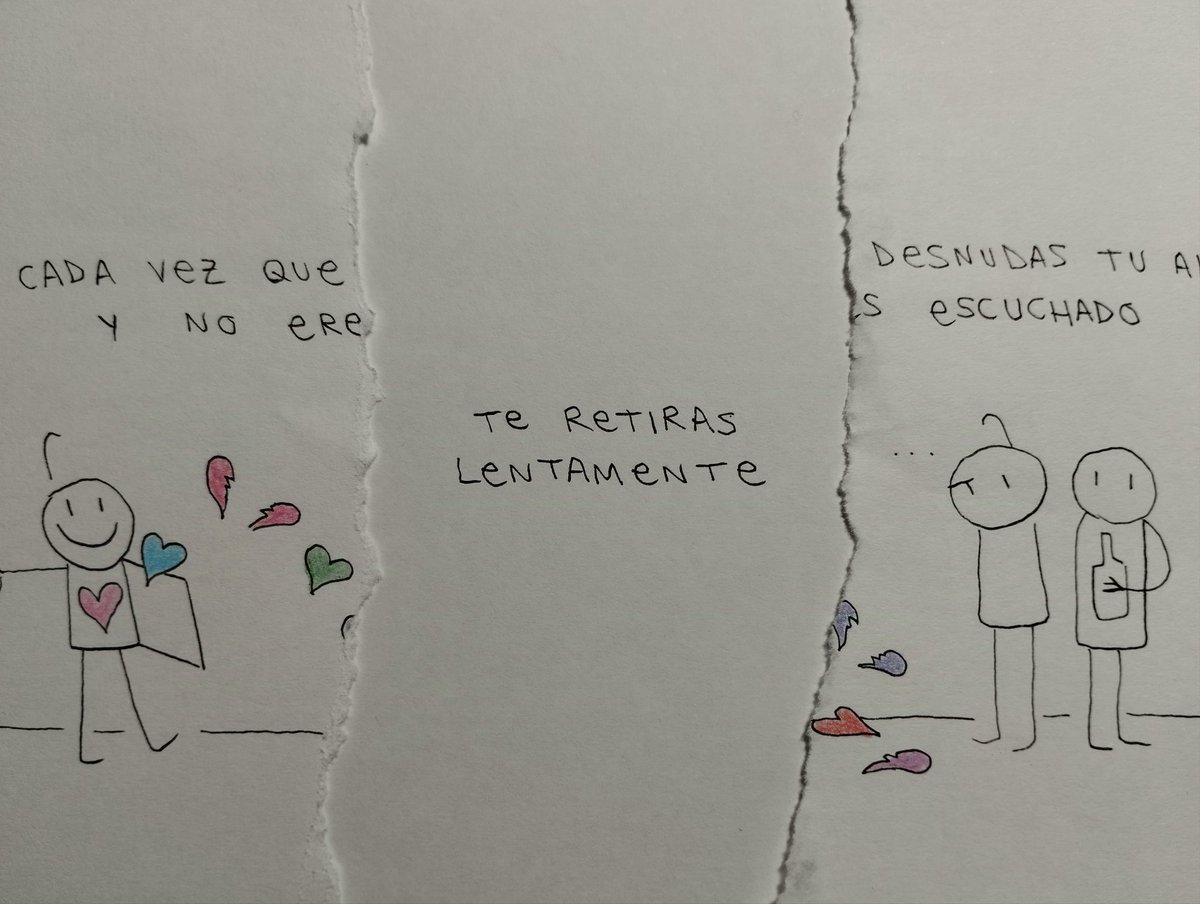 CADA VEZ QUE DESNUDAS TU
Y NO ERES ESCUCHADO
TE RETIRAS
LENTAMENTE
...